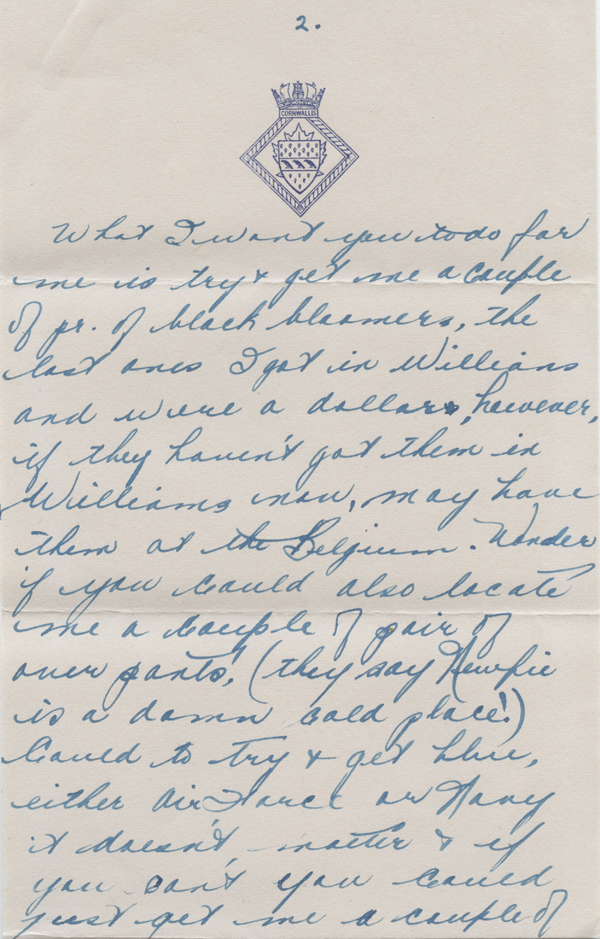 2.
CORNWALLIS
What I want you to do for
me is try & get me a couple
of pr. of black bloomers, the
last ones I got in Williams
and were a dollar, however,
if they haven't got them in
Williams now, may have
them at the Belgium. Wonder
if you could also locate
me a couple of pair of
over pants! (they say Newfie
is a damn cold place!)
Could to try & get blue,
either Air Force or Navy
it doesn't matter & if
you can't you could
just get me a couple of